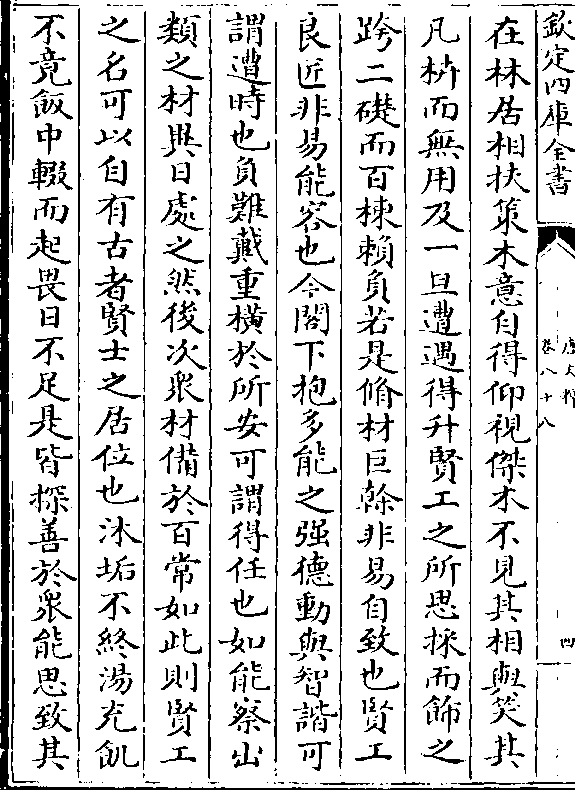 欽定四庫全書
唐文粹
卷八十八
四
在林居相扶策木意自得仰視傑木不見其相與笑其
凡枿而無用及一旦遭遇得升賢工之所思採而飾之
跨二礎而百棟賴負若是脩材巨榦非易自致也賢工
良匠非易能容也今閣下抱多能之强德動與智諧可
謂遭時也負難戴重橫於所安可謂得任也如能察出
類之材與日處之然後次衆材備於百常如此則賢工
之名可以自有古者賢士之居位也沐垢不終湯充飢
不竟飯中輟而起畏日不足是皆探善於衆能思致其